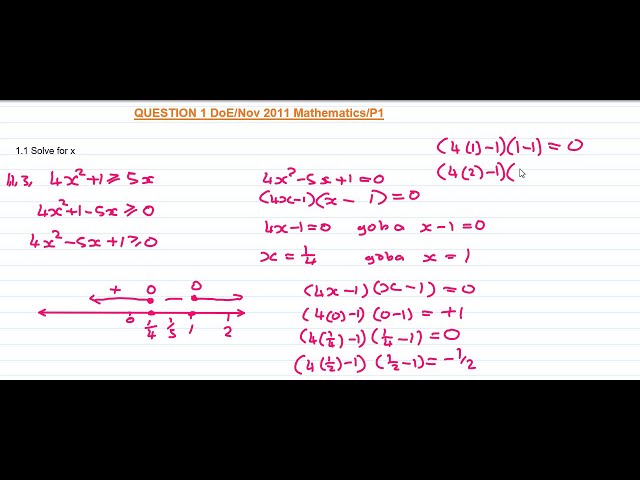 QUESTION 1 DoE/Nov 2011 Mathematics/P1
1.1 Solve for x
1.1.3, 4x²+1 ⩾ 5x
4x²+1-5x ⩾ 0
4x²-5x+1 ⩾ 0
+ 0 — 0
0 1/4 1/5 1 2
4x²-5x+1=0
(4x-1)(x - 1)=0
4x-1=0 goba x-1=0
x = 1/4 goba x = 1
(4x-1)(x-1)=0
(4(0)-1)(0-1) = +1
(4(1/4)-1)(1/4-1)=0
(4(1/2)-1)(1/2-1)=-1/2
(4(1)-1)(1-1)=0
(4(2)-1)(